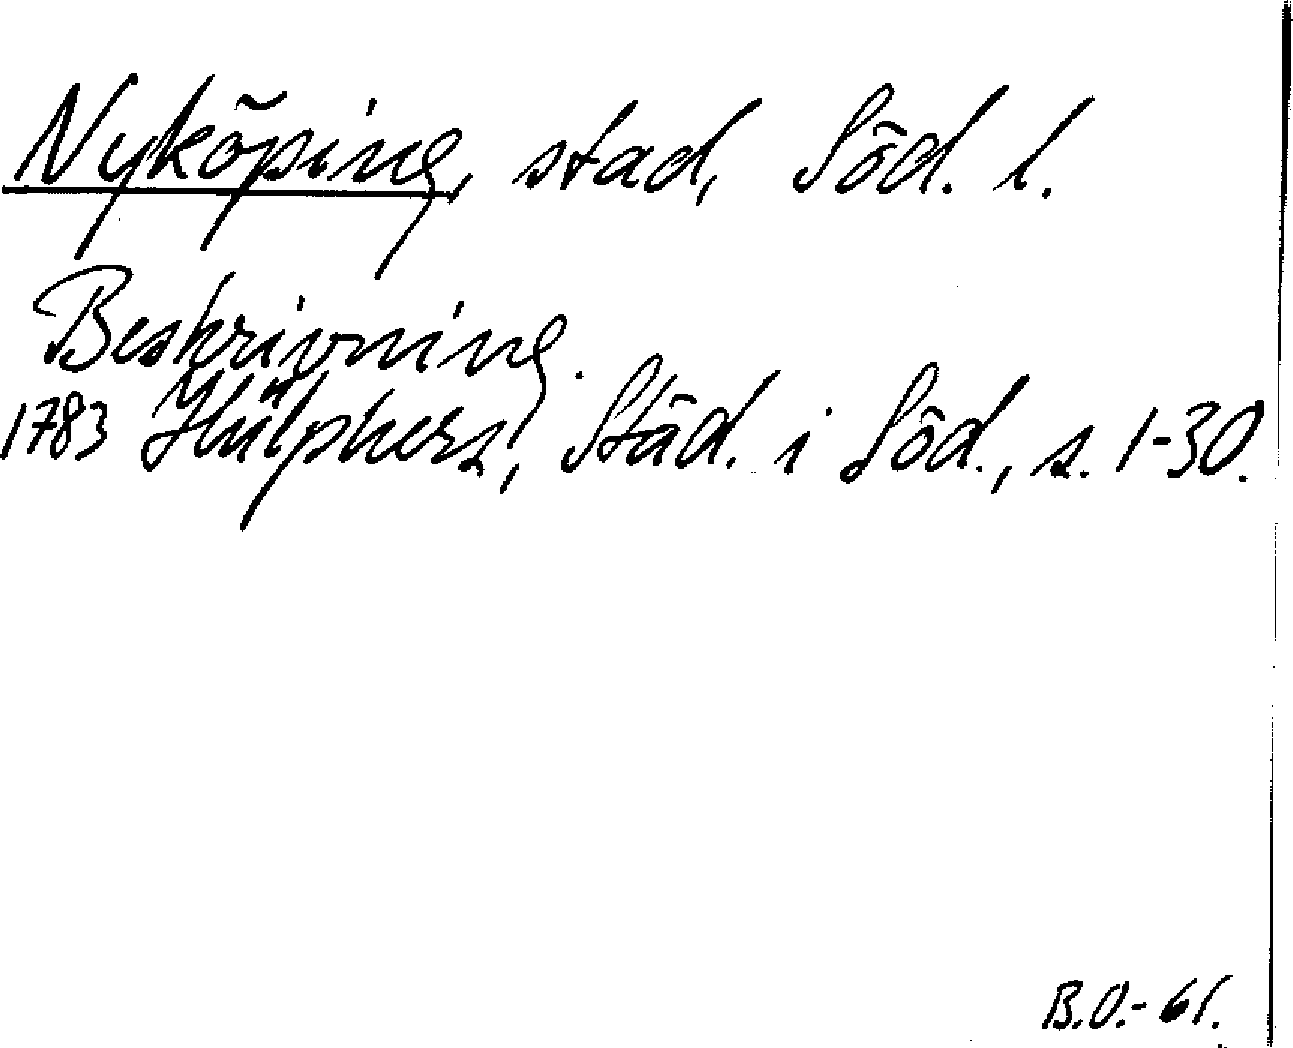 Nyköping, stad, Söd. l.
Beskrivning.
1783 Hülphers, Städ. i Söd., s. 1-30.
B.O.-61.